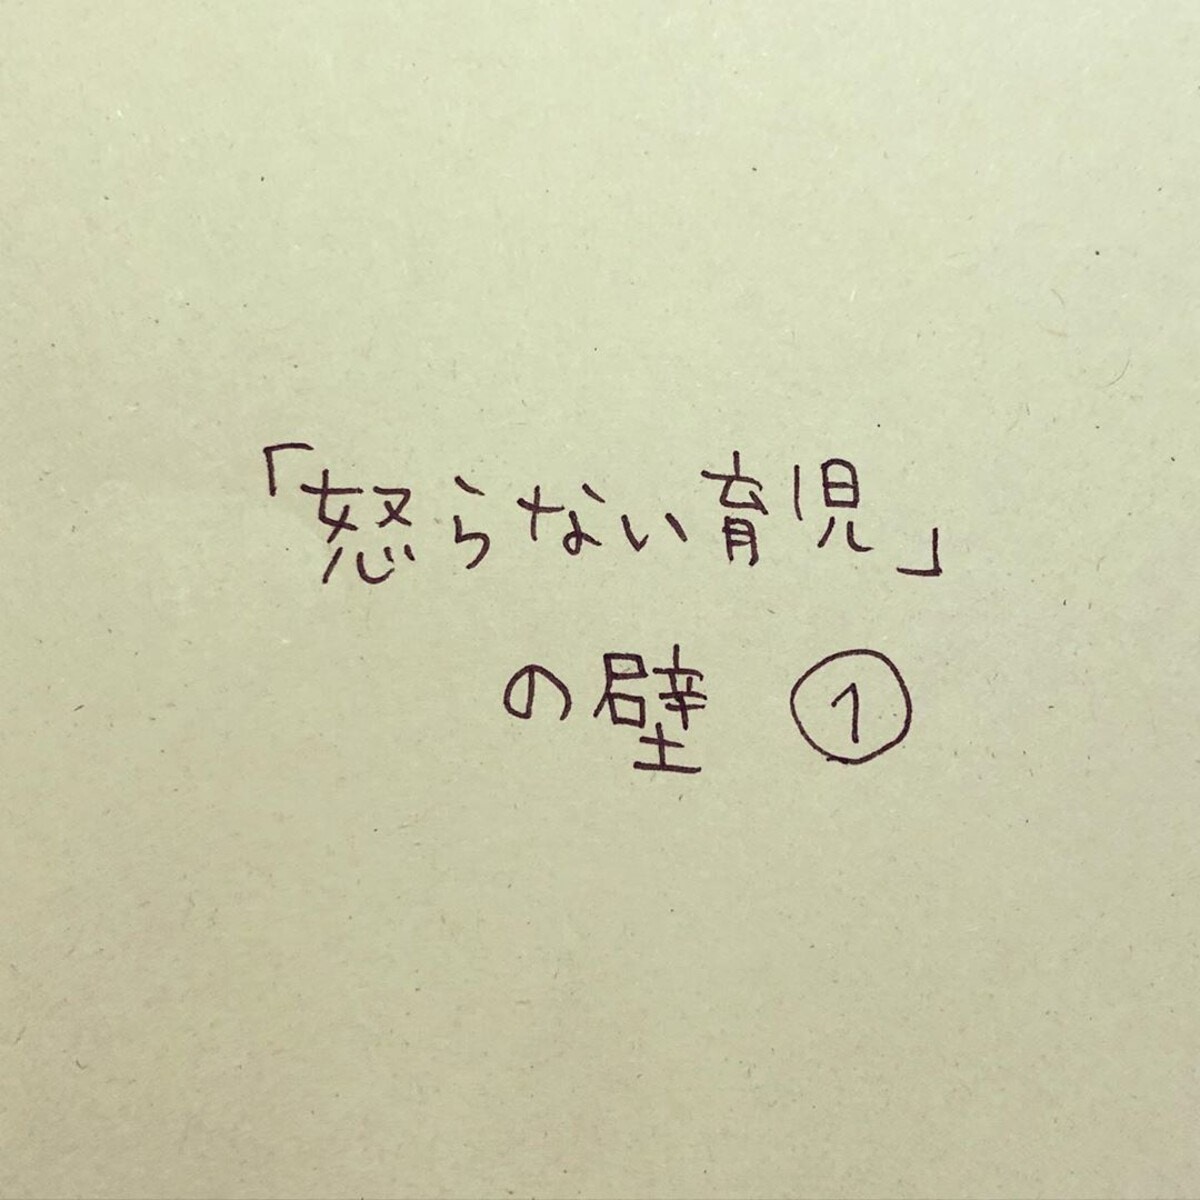 「怒らない育児」
の壁 ①